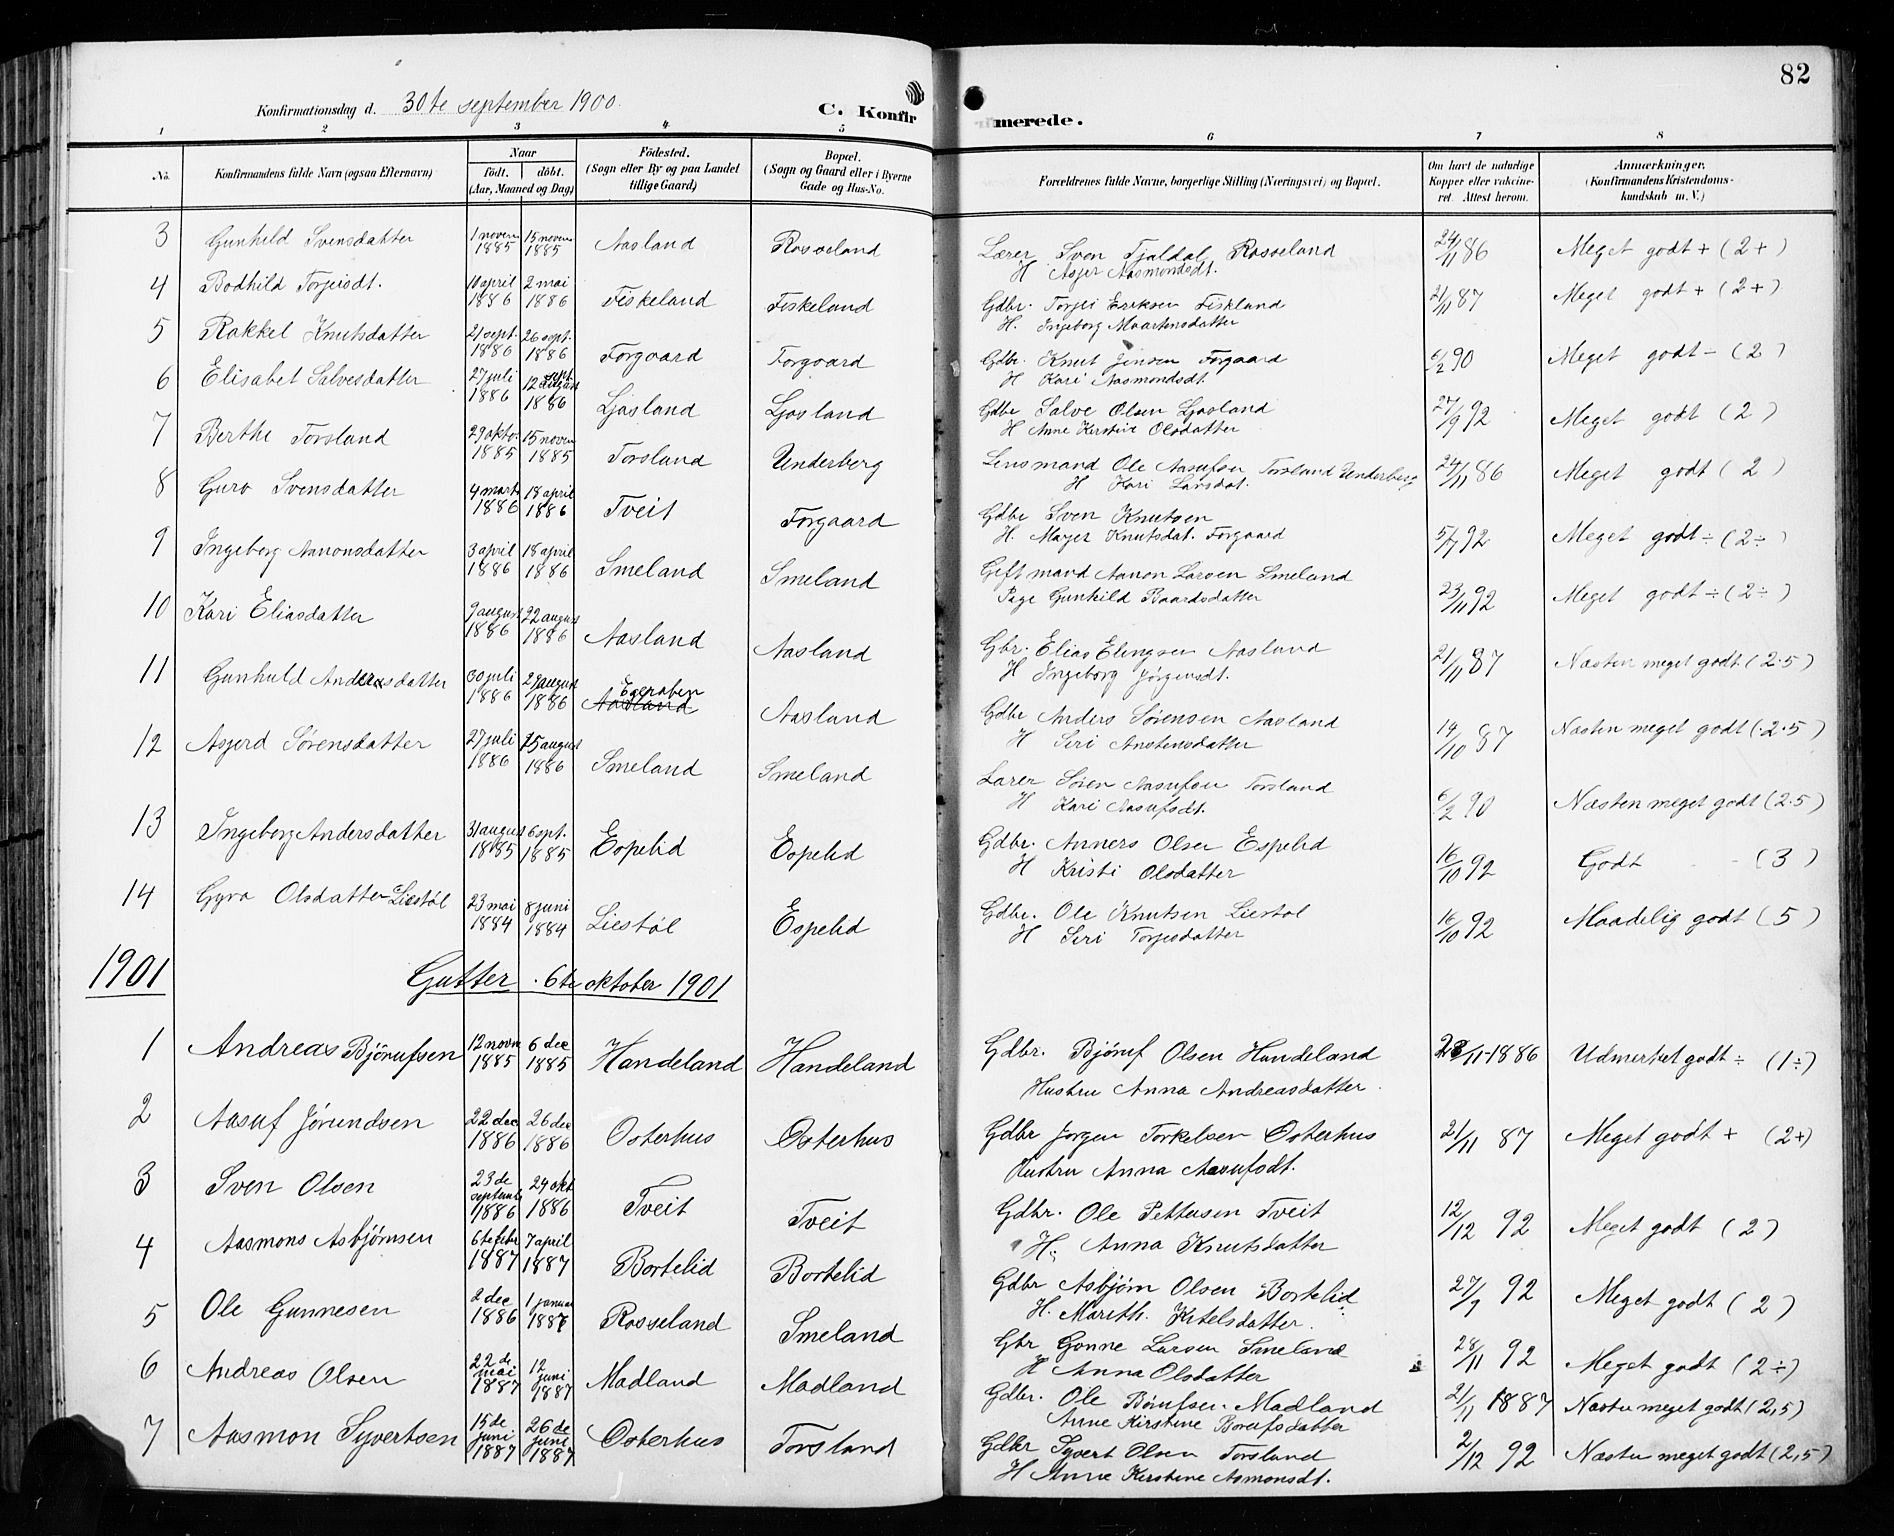 82
Konfirmationsdag d. 30te september 1900.
C. Konfirmerede.
1 2 3 4 5 6 7 8
No. Konfirmandens fulde Navn (ogsaa Efternavn) Naar født. døbt. (Aar, Maaned og Dag) Fødested. (Sogn eller By og paa Landet tillige Gaard) Bopæl. (Sogn og Gaard eller i Byerne Gade og Hus-No. Forældrenes fulde Navne, borgerlige Stilling (Næringsvei) og Bopæl. Om havt de naturlige Kopper eller vakcineret. Attest herom. Anmærkninger. (Konfirmandens Kristendomskundskab m. V.)
3 Gunhild Svensdatter 1 novem 1885 15 novem 1885 Aasland Rosseland Lærer Sven Tjaldal Rosseland 24/11 86 Meget godt + (2+)
H Asjer Aasmondsdt.
4 Bodhild Torjeisdt. 10 april 1886 2 mai 1886 Fiskeland Fiskeland Gdbr. Torjei Eriksen Fiskland 21/11 87 Meget godt + (2+)
H. Ingeborg Maartensdatter
5 Rakkel Knutsdatter 21 sept. 1886 26 sept. 1886 Forgaard Forgaard Gdbr. Knut Jensen Forgaard 6/2 90 Meget godt - (2)
H Kari Aasmondsdt.
6 Elisabet Salvesdatter 27 juli 1886 12 sept 1886 Ljosland Ljosland Gdbr Salve Olsen Ljosland 27/9 92 Meget godt (2)
H Anne Kerstine Olsdatter
7 Berthe Torsland 29 okto. 1885 15 novem 1885 Torsland Underberg Lensmand Ole Aasufsen Torsland Underberg 24/11 86 Meget godt (2
H Kari Larsdat.
8 Guro Svensdatter 4 marts 1886 18 april 1886 Tveit Forgaard Gdbr Sven Knutsen 5/7 92 Meget godt ÷ (2÷)
H. Marjer Knutsdat. Forgaard
9 Ingeborg Aanonsdatter 3 april 1886 18 april 1886 Smeland Smeland Gift mand Aanon Larsen Smeland 23/11 92 Meget godt ÷ (2÷)
Pige Gunhild Baardsdatter
10 Kari Eliasdatter 9 august 1886 22 august 1886 Aasland Aasland Gbr. Elias Elingsen Aasland 21/11 87 Næsten meget godt (2.5)
H Ingeborg Jørgensdt.
11 Gunhuld Andersdatter 30 juli 1886 29 august 1886 Aasland Aasland Gdbr Anders Sørensen Aasland 19/10 87 Næsten meget godt (2.5)
H Siri Anstensdatter
12 Asjerd Sørensdatter 27 juli 1886 15 august 1886 Smeland Smeland Lærer Søren Aasufsen Torsland 6/2 90 Næsten meget godt (2.5)
H Kari Aasufsdt.
13 Ingeborg Andersdatter 31 august 1885 6 sept. 1885 Espelid Espelid Gdbr. Anners Olsen Espelid 16/10 92 Godt (3)
H Kristi Olsdatter
14 Gyro Olsdatter Liestøl 23 mai 1884 8 juni 1884 Liestøl Espelid Gdbr. Ole Knutsen Liestøl 16/10 92 Maadelig godt (5)
H Siri Torjesdatter
1901 Gutter . 6te oktober 1901
1 Andreas Bjørufsen 12 novm 1885 6 dec 1885 Handeland Handeland Gdbr. Bjøruf Olsen Handeland 23/11-1886 Udmerket godt ÷ (1÷)
Hustru Anna Andreasdatter.
2 Aasuf Jørundsen 22 dec 1886 26 dec 1886 Osterhus Osterhus Gdbr Jørgen Torkelsen Osterhus 21/11 87 Meget godt + (2+)
Hustru Anna Aasufsdt.
3 Sven Olsen 23 de septemb 1886 24 okt 1886 Tveit Tveit Gdbr. Ole Pettersen Tveit 12/12 92 Meget godt (2)
H. Anna Knutsdatter
4 Aasmons Asbjørnsen 6te febr 1887 7 april 1887 Bortelid Bortelid Gdbr Asbjørn Olsen Bortelid 27/9 92 Meget godt (2)
H. Mareth. Ketelsdatter.
5 Ole Gunnesen 2 dec 1886 1 januar 1887 Rosseland Smeland Gbr Gonne Larsen Smeland 28/11 92 Meget godt (2÷)
H Anna Olsdatter
6 Andreas Olsen 22 de. mai 1887 12 juni 1887 Madland Madland Gdbr. Ole Børufsen Madland 21/11 1887 Næsten meget godt (2,5)
Anne Kirstine Borufsdatter
7 Aasmon Syvertsen 15 de juni 1887 26 de juni 1887 Osterhus Torsland Gdbr Syvert Olsen Torsland 2/12 92 Næsten meget godt (2,5)
H Anne Kerstine Asmonsdt.